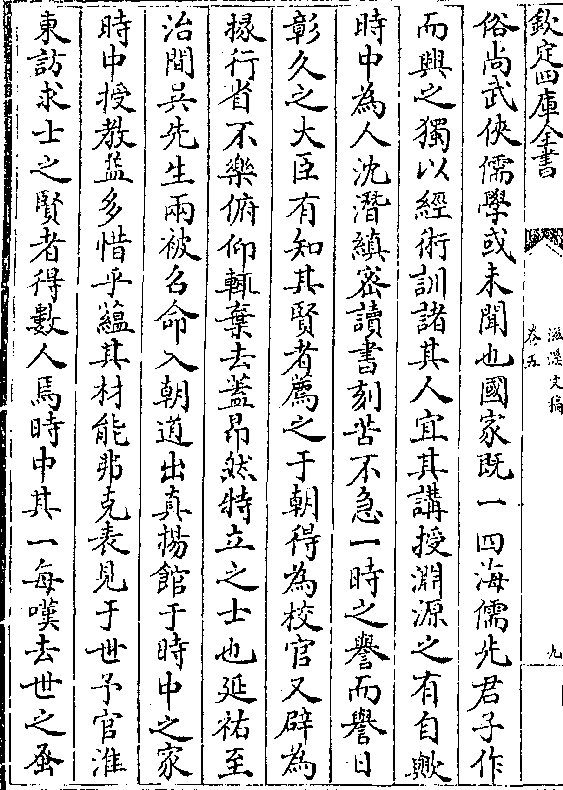 欽定四庫全書
滋溪文稿
卷五
九
俗尚武俠儒學或未聞也國家既一四海儒先君子作
而興之獨以經術訓諸其人宜其講授淵源之有自歟
時中為人沈潛縝密讀書刻苦不急一時之譽而譽日
彰久之大臣有知其賢者薦之于朝得為校官又辟為
掾行省不樂俯仰輒棄去蓋昂然特立之士也延祐至
治間吳先生兩被召命入朝道出真揚館于時中之家
時中授教益多惜乎蘊其材能弗克表見于世予官淮
東訪求士之賢者得數人焉時中其一每嘆去世之蚤